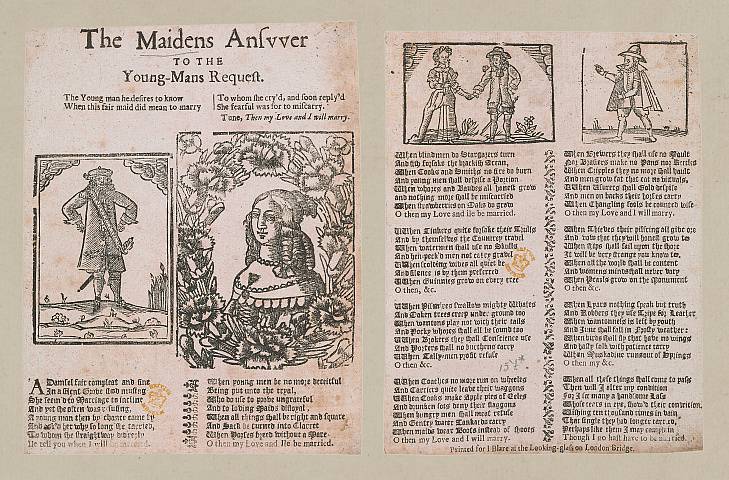 The Maidens Anſvver
TO THE
Young-Mans Requeſt.
The Young man he deſires to know
When this fair maid did mean to marry
To whom ſhe cry'd, and ſoon reply'd
She fearful was for to miſcarry.
Tune, Then my Love and I will marry.
A Damſel fair compleat and fine
In a ſilent Grove ſtood muſing
She ſeem'd to Marriage to incline
And yet ſhe often was refuſing,
A young man then by chance came by
And ask'd her why ſo long ſhe tarried,
To whom ſhe ſtraightway did reply
Ile tell you when I will be married.
When young men be no more deceitful
Being put unto the tryal,
Who do uſe to probe ungrateful
And to loving Maids diſloyal,
When all things ſhall be right and ſquare
And Sack be turned into Claret
When Horſes breed without a Mare
O then my Love and Ile be married.
When blind men do Stargazers turn
And fiſh forſake the brackiſh Ocean,
When Cooks and Smiths no fire do burn
And young men ſhall deſpiſe a Portion
When whores and Bawds all honeſt grow
and nothing more ſhall be miſcarried
When ſtrawberries on Oaks do grow
O then my Love and Ile be married.
When Tinkers quite forſake their Trulls
And by themſelves the Countrey travel
When watermen ſhall uſe no Skulls
And hen-peck'd men not cry gravel
When ſcolding wives all quiet be
And ſilence is by them preferred
When Guinnies grow on every tree
O then, &c.
When Pilchers ſwallow mighty Whales
And Oaken trees creep under ground too
When wantons play not with their tails
And Porky whores ſhall ſtill be ſound too
When Brokers they ſhall Conſcience uſe
And Porters ſhall no burthens carry
When Tallymen profit refuſe
O then &c.
When Coaches no more run on wheeles
And Carriers quite leave their waggons
When Cooks make Apple pies of Eeles
And drunken ſots deny their flaggons
When hungry men ſhall meat refuſe
And Gentry water Tankards carry
When maids wear Boots inſtead of ſhooes
O then my Love and I will marry.
When Brewers they ſhall uſe no Mault
Nor Bakers make no Pyes nor Breches
When Cripples they no more ſhall hault
And men grow fat that eat no victuals,
When Uſurers ſhall Gold deſpiſe
And men on backs their horſes carry
When Changeling fools be counted wiſe
O then my Love and I will marry.
When Thieves their pilfering all give o're
And vow that they will honeſt grow to
When ſhips ſhall ſail upon the ſhore
It will be very ſtrange you know to,
When all the world ſhall be content
And womens minds ſhall never vary
When Pearls grow on the Monument
O then &c.
When Lyars nothing ſpeak but truth
And Robbers they uſe Leather
When wantonneſs is left by youth
And June ſhall fall in Froſty weather:
When birds ſhall fly that have no wings
And haſty folk with patience tarry
When runs out of ſprings
O then my &c.
When all theſe things ſhall come to paſs
Then will I alter my condition
For I ſee many a handſome Laſs
Who tears in eye, ſhow's their condition,
Wiſhing ten thouſand times in vain,
That ſingle they had longer tarried,
Perhaps like them I may complain
Though I no haſt have to be married.
Printed for J Blare at the Looking-glaſs on London Bridge.